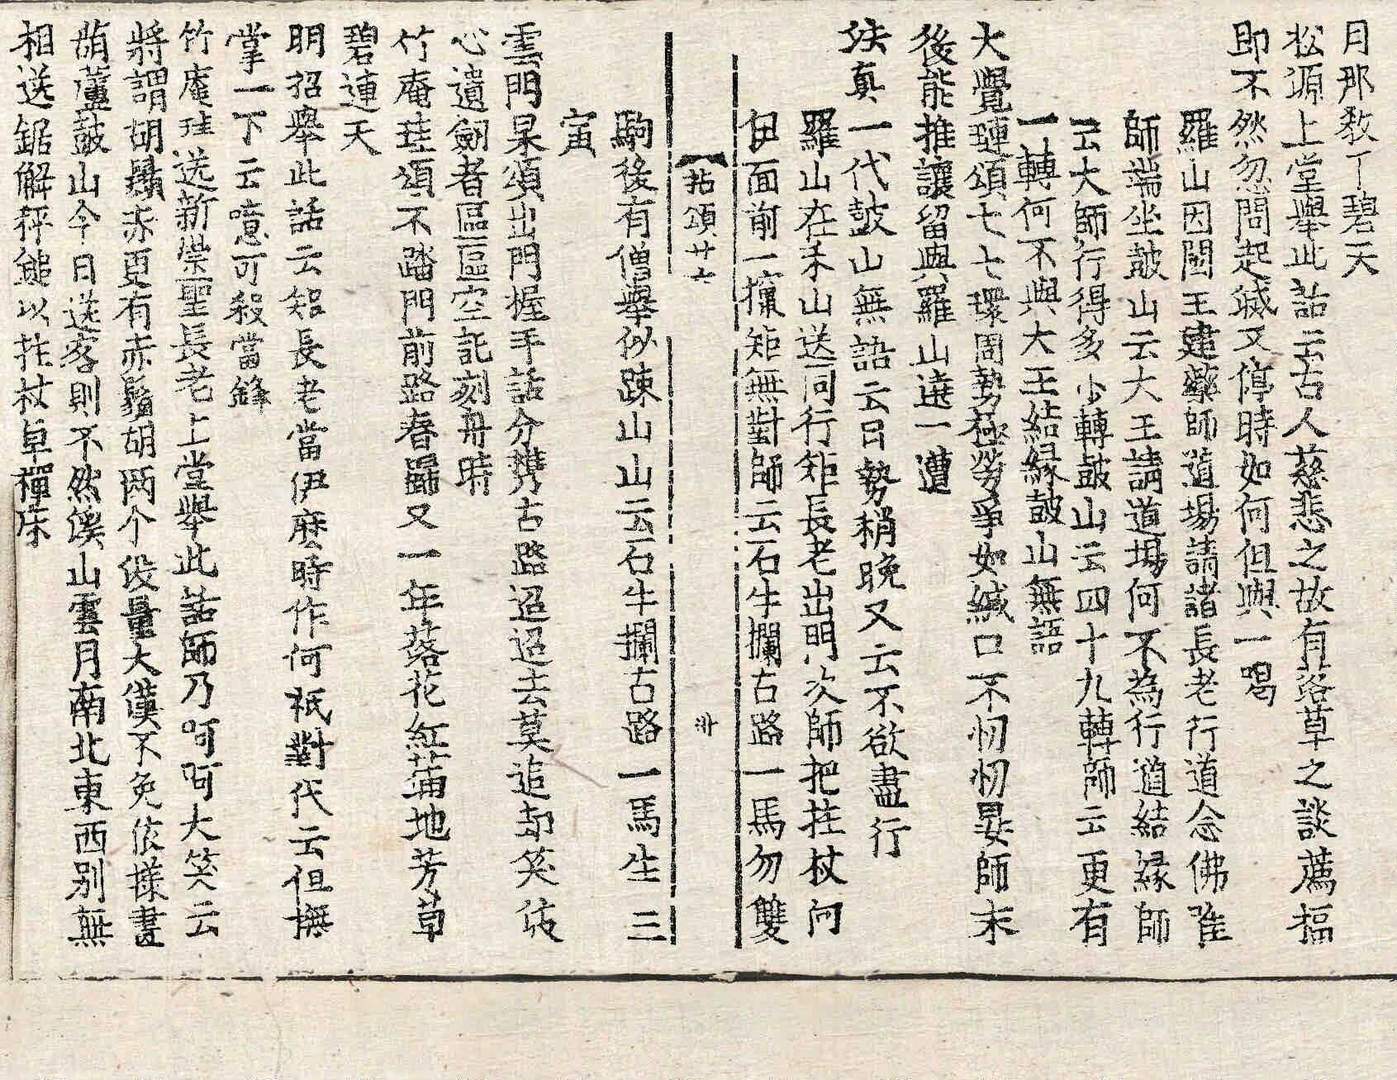 月那教下碧天
松源上堂舉此話云古人慈悲之故有落草之談薦福
即不然忽問起滅又停時如何但與一喝
羅山因閩王建藥師道場請諸長老行道念佛唯
師端坐鼓山云大王請道場何不為行道結緣師
云大師行得多少轉鼓山云四十九轉師云更有
一轉何不與大王結緣鼓山無語
大覺璉頌七七環周勢極勞爭如緘口不忉忉晏師末
後能推讓留與羅山遶一遭
法真一代鼓山無語云日勢稍晚又云不欲盡行
羅山在禾山送同行矩長老出門次師把拄杖向
伊面前一攛矩無對師云石牛攔古路一馬勿雙
拈頌廿七
駒後有僧舉似踈山山云石牛攔古路一馬生三
寅
雲門杲頌出門握手話分携古路迢迢去莫追却笑波
心遺劒者區區空記刻舟時
竹庵珪頌不踏門前路春歸又一年落花紅蒲地芳草
碧連天
明招舉此話云矩長老當伊麽時作何祇對代云但撫
掌一下云噫可殺當鋒
竹庵珪送新崇聖長老上堂舉此話師乃呵呵大笑云
將謂胡鬚赤更有赤鬚胡两个沒量大漢不免依樣畫
葫蘆鼓山今日送客則不然溪山雲月南北東西別無
相送鋸解秤鎚以拄杖卓禪床